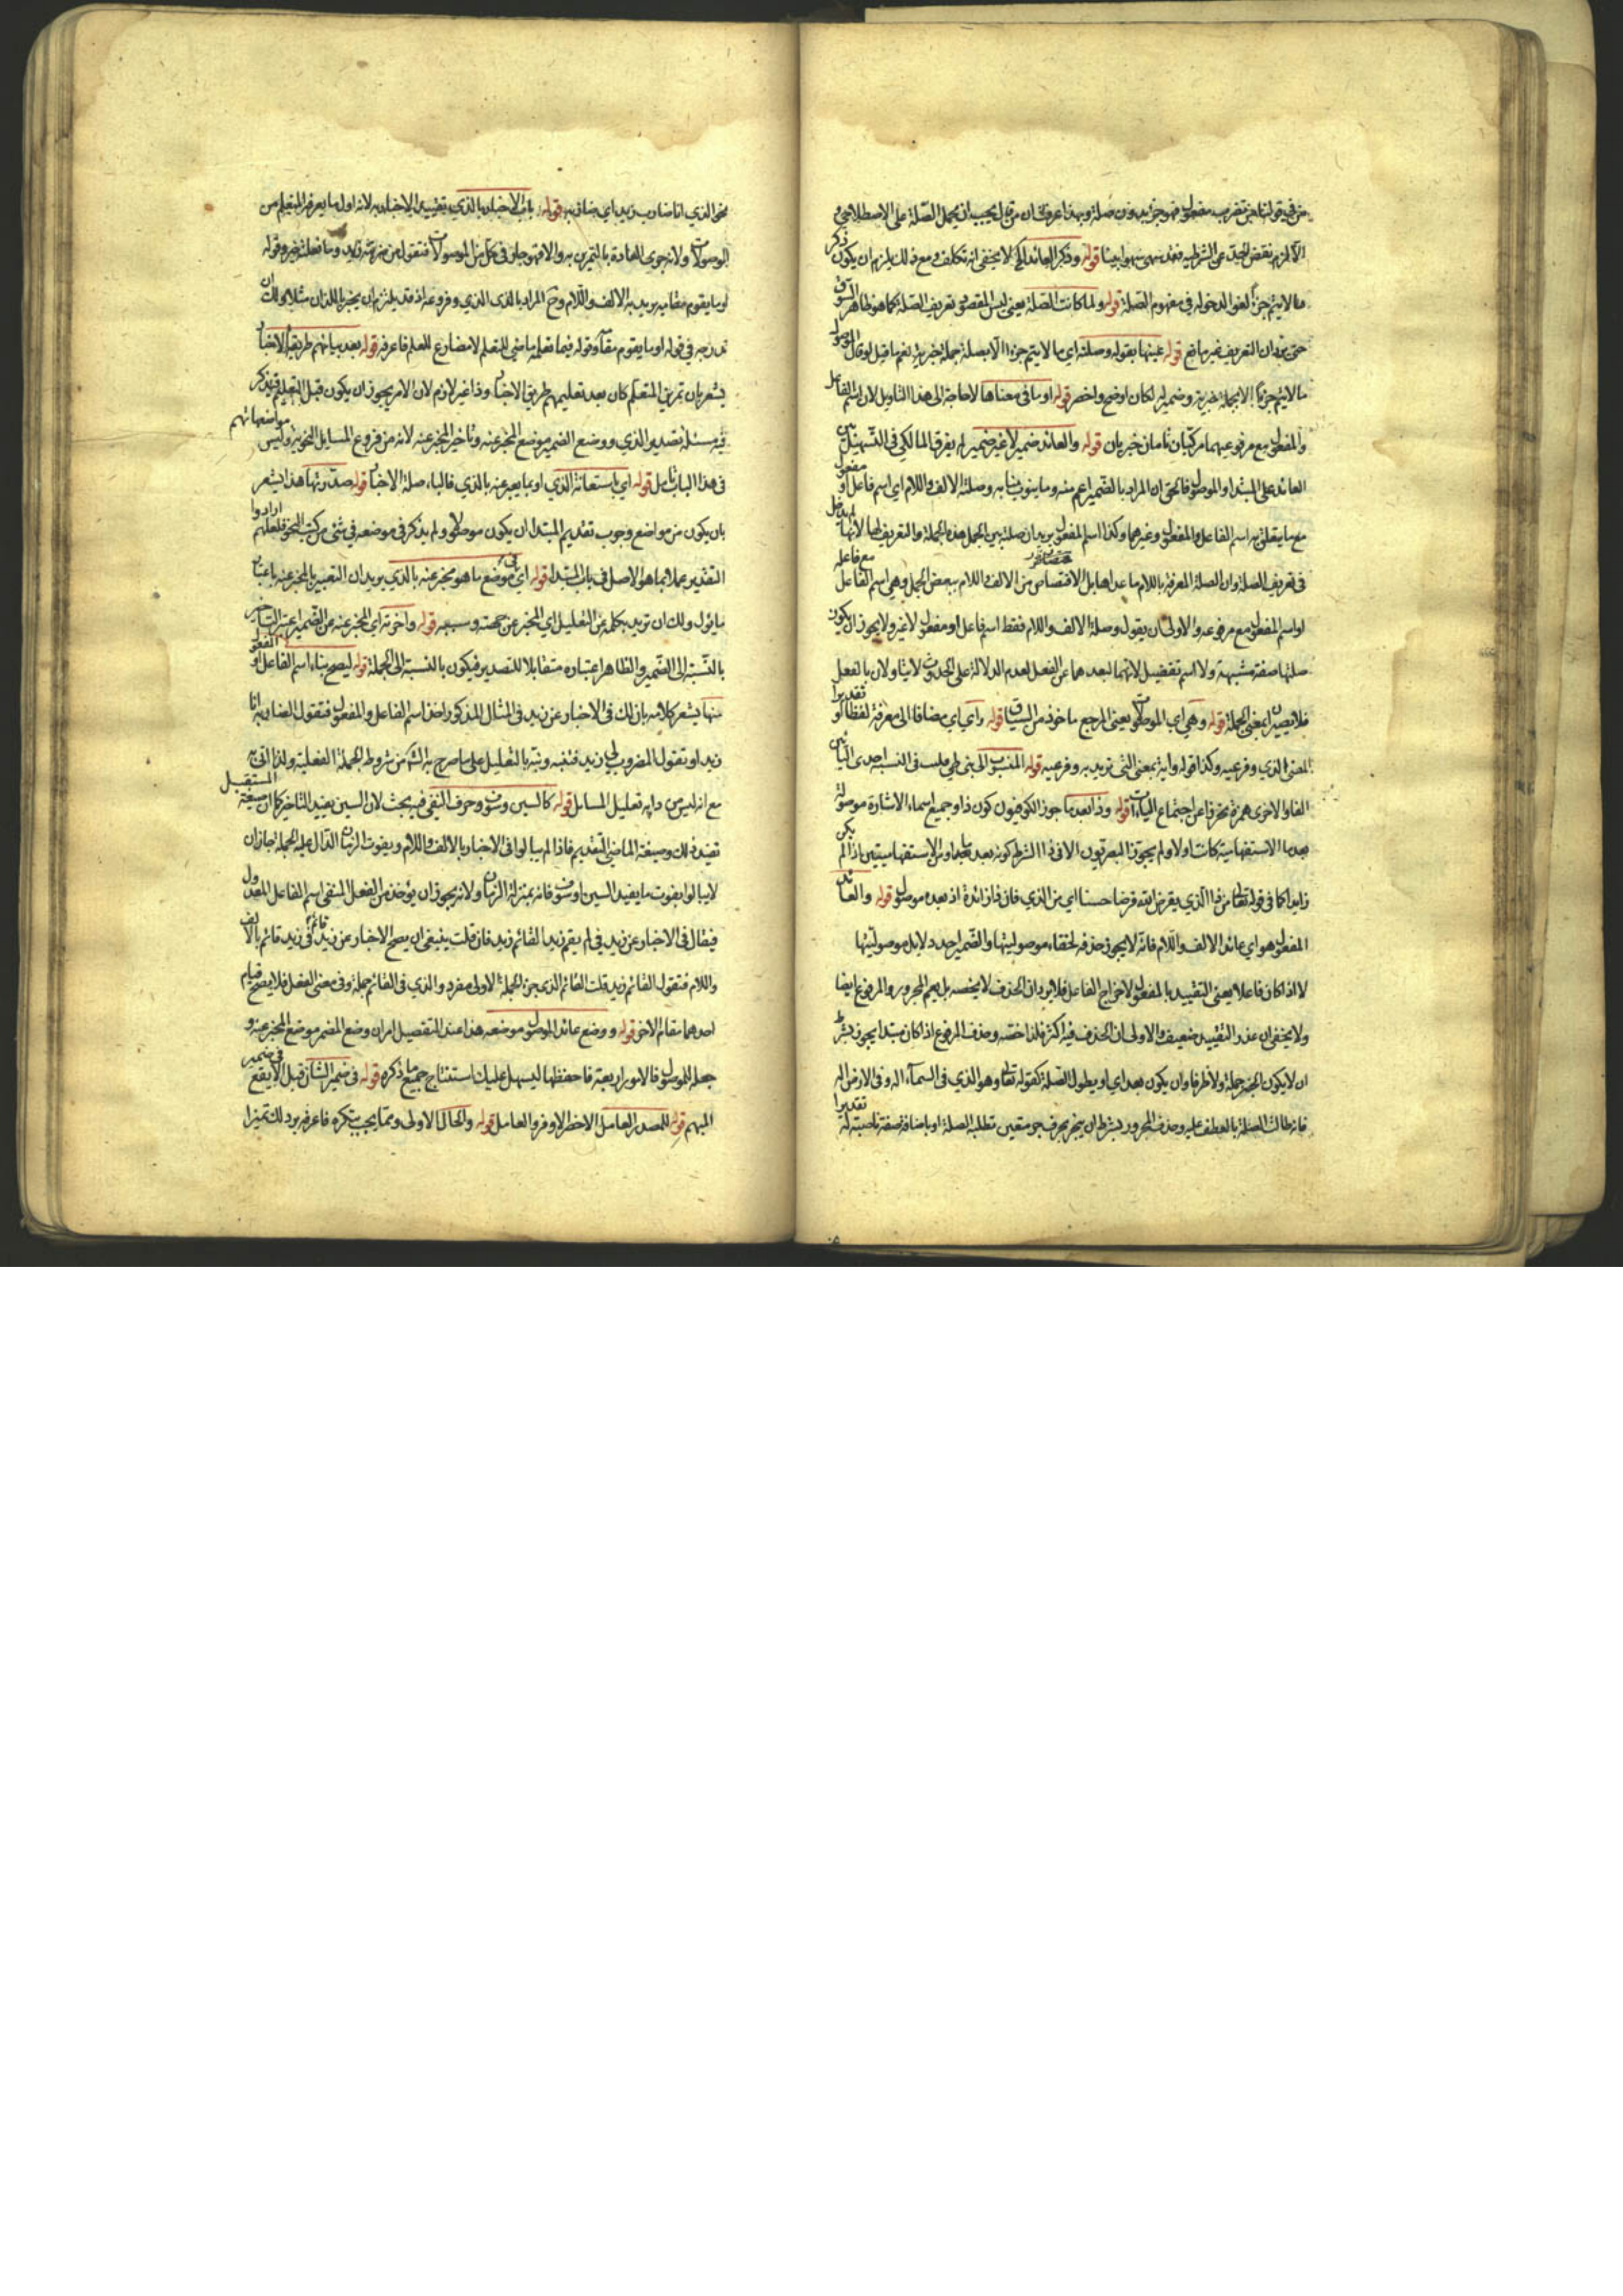 من في قولنا من تضرب مضروب فهو جزء بدون صلة وبهذا عرفت ان من قال يجب ان يحمل الصلة على الاصطلاحي
الا لزم نقض الحد عن الشرطية فقد سهى سهوا بينا قوله وذكر العائد الخ لا يخفى انه تكلف ومع ذلك يلزم ان يكون ذكر
ما لا يتم جزءا لغوا لدخوله في مفهوم الصلة قوله ولما كانت الصلة يعني ليس المقصود تعريف الصلة كما هو ظاهر السوق
حتى يرد ان التعريف غير مانع قوله عينها بقوله وصلته اي ما لا يتم جزءا الا بصلة جملة خبرية نعم ما قيل لو قال الموصول
ما لا يتم جزءا الا بجملة خبرية وضمير له لكان اوضح واخصر قوله او ما في معناها لا حاجة الى هذا التاويل لان اسم الفاعل
والمفعول مع مرفوعيهما مركبان تامان خبريان قوله والعائد ضمير لا غير ضمير له يفرق المالكي في التسهيل بين
العائد على المبتدا والموصول فالحق ان المراد بالضمير اعم منه وما ينوب منابه وصلة الالف واللام اي اسم فاعل او مفعول
مع ما يتعلق به اسم الفاعل والمفعول وغيرهما وكذا اسم المفعول يريد ان صلته من الجمل هذه الجملة والتعريف لها لانها لم تدخل
في تعريف الصلة وان الصلة المعرفة باللام ما عداها بل الاقتصاص من الالف واللام ببعض الجمل وهي اسم الفاعل مع فاعله
او اسم المفعول مع مرفوعه والاولى ان يقول وصلة الالف واللام فقط اسم فاعل او مفعول لا غير ولا يجوز ان يكون
صلتها صفة مشبهة ولا اسم تفضيل لانهما لبعدهما عن الفعل لعدم الدلالة على الحدوث لا يتاولان بالفعل
فلا يصيران بمعنى الجملة قوله وهي اي الموصولات يعني المرجع ماخوذ من السياق قوله واي اي مضافا الى معرفة لفظا او تقديرا
المعنى الذي وفرعيه وكذا قوله واية بمعنى التي تريد به وفرعيه قوله المنسوب الى بني طي ملبس في النسبة احدى اليائين
الفا والاخرى همزة تحرزا عن اجتماع الياءات قوله وذا بعد ما جوز الكوفيون كون ذا وجميع اسماء الاشارة موصولة
بعد ما الاستفهامية كانت اولا ولم يجوز البصريون الا في ذا بشرط كونه بعد ما او من الاستفهاميتين اذا لم يكن
زايدا كما في قوله تعالى من ذا الذي يقرض الله قرضا حسنا اي من الذي فان ذا زائدة اذ بعده موصول قوله والعائد
المفعول هو اي عائد الالف واللام فانه لا يجوز حذفه لخفاء موصوليتها والضمير احد دلايل موصوليتها
لا اذا كان فاعلا يعني التقييد بالمفعول لاخراج الفاعل فلا يرد ان الحذف لا يخصه بل يعم المجرور والمرفوع ايضا
ولا يخفى ان عذر التقييد ضعيف والاولى ان الحذف فيه اكثر فلذا خصه وحذف المرفوع اذا كان مبتدا يجوز بشرط
ان لا يكون الخبر جملة ولا ظرفا وان يكون بعد اي او يطول الصلة كقوله تعالى وهو الذي في السماء اله وفي الارض اله
فانه طالت الصلة بالعطف عليه وحذف المجرور بشرط ان ينجر بحرف جر متعين تطلبه الصلة او باضافة صفة ناصبة له تقديرا
نحو الذي انا ضارب زيد اي ضاربه قوله باب الاخبار بالذي تقييد الاخبار به لانه اول ما يعرفه المتعلم من
الموصولات ولانه جرى العادة بالتمرين به والا فهو جار في كل من الموصولات فتقول من ضربته زيد وما فعلته ضير وقوله
او ما يقوم مقامه يريد به الالف واللام وح المراد بالذي الذي وفروعه اذ قد يلزم ان يخبر باللذان مثلا ولك ان
تدرجه في قوله او ما يقوم مقامه وقوله فيما تعلمه ماضي التعلم لا مضارع للعلم فاعرفه قوله بعد بيانهم طريقة الاخبار
يشعر بان تمرين المتعلم كان بعد تعليمهم طريق الاخبار وذا غير لازم لان الامر يجوز ان يكون قبل التعلم قد ذكر
في مسئلة تصدير الذي ووضع الضمير موضع المخبر عنه وتاخير المخبر عنه لانه من فروع المسايل النحوية وليس مواضعاتهم
في هذا الباب تامل قوله اي باستعانة الذي او بما يعبر عنه بالذي فالباء صلة الاخبار قوله صدرتها هذا يشعر
بان يكون من مواضع وجوب تقديم المبتدا ان يكون موصولا ولم يذكر في موضعه في شئ من كتب النحو فلعلهم ارادوا
التقدير عملا بما هو الاصل في باب المبتدا قوله اي في موضع ما هو مخبر عنه بالذي يريد ان التعبير بالمخبر عنه باعتبار
ما يؤل ولك ان تريد بكلمة عن التعليل اي المخبر عن جهته وسببه قوله واخرته اي المخبر عنه عن الضمير اعتبر التاخير
بالنسبة الى الضمير والظاهر اعتباره متقابلا للتصدير فيكون بالنسبة الى الجملة قوله ليصح بناء اسم الفاعل او المفعول
منها يشعر كلامه بان لك في الاخبار عن زيد في المثال المذكور اخذ اسم الفاعل والمفعول فتقول الضاربه انا
زيد او تقول المضروب لي زيد فتنبه ونبه بالتعليل على ما صرح به الشارح من شروط الجملة الفعلية ولذا اتى به
مع انه ليس من دابه تعليل المسايل قوله كالسين وسوف وحرف النفي فيه بحث لان السين يفيد التاخير كما ان صيغة المستقبل
تفيد ذلك وصيغة الماضي التقديم فاذا لم يبالوا في الاخبار بالالف واللام وبفوت الزمان الدال عليه الجملة جاز ان
لا يبالوا بفوت ما يفيد السين او سوف فانه بمنزلة الزمان ولانه يجوز ان يؤخذ من الفعل المنفي اسم الفاعل المعدول
فيقال في الاخبار عن زيد في لم يقم زيد القائم زيد فان قلت ينبغي ان يصح الاخبار عن زيد في زيد قائم بالالف
واللام فتقول القائم زيد قلت القائم الذي جزء الجملة الاولى مفرد والذي في القائم جملة وفي معنى الفعل فلا يصح قيام
احدهما مقام الاخر قوله ووضع عائد الموصول موضعه هذا عند التفصيل امران وضع المضمر موضع المخبر عنه و
جعله للموصول فالامور اربعة فاحفظها ليسهل عليك استنتاج جميع ما ذكره قوله في ضمير الشان قبل الا يقع في ضمير
المبهم قوله للمصدر العامل الاخطر الاوفر والعامل قوله والحال الاولى ومما يجب تنكره فاعرفه يرد لك تميزا